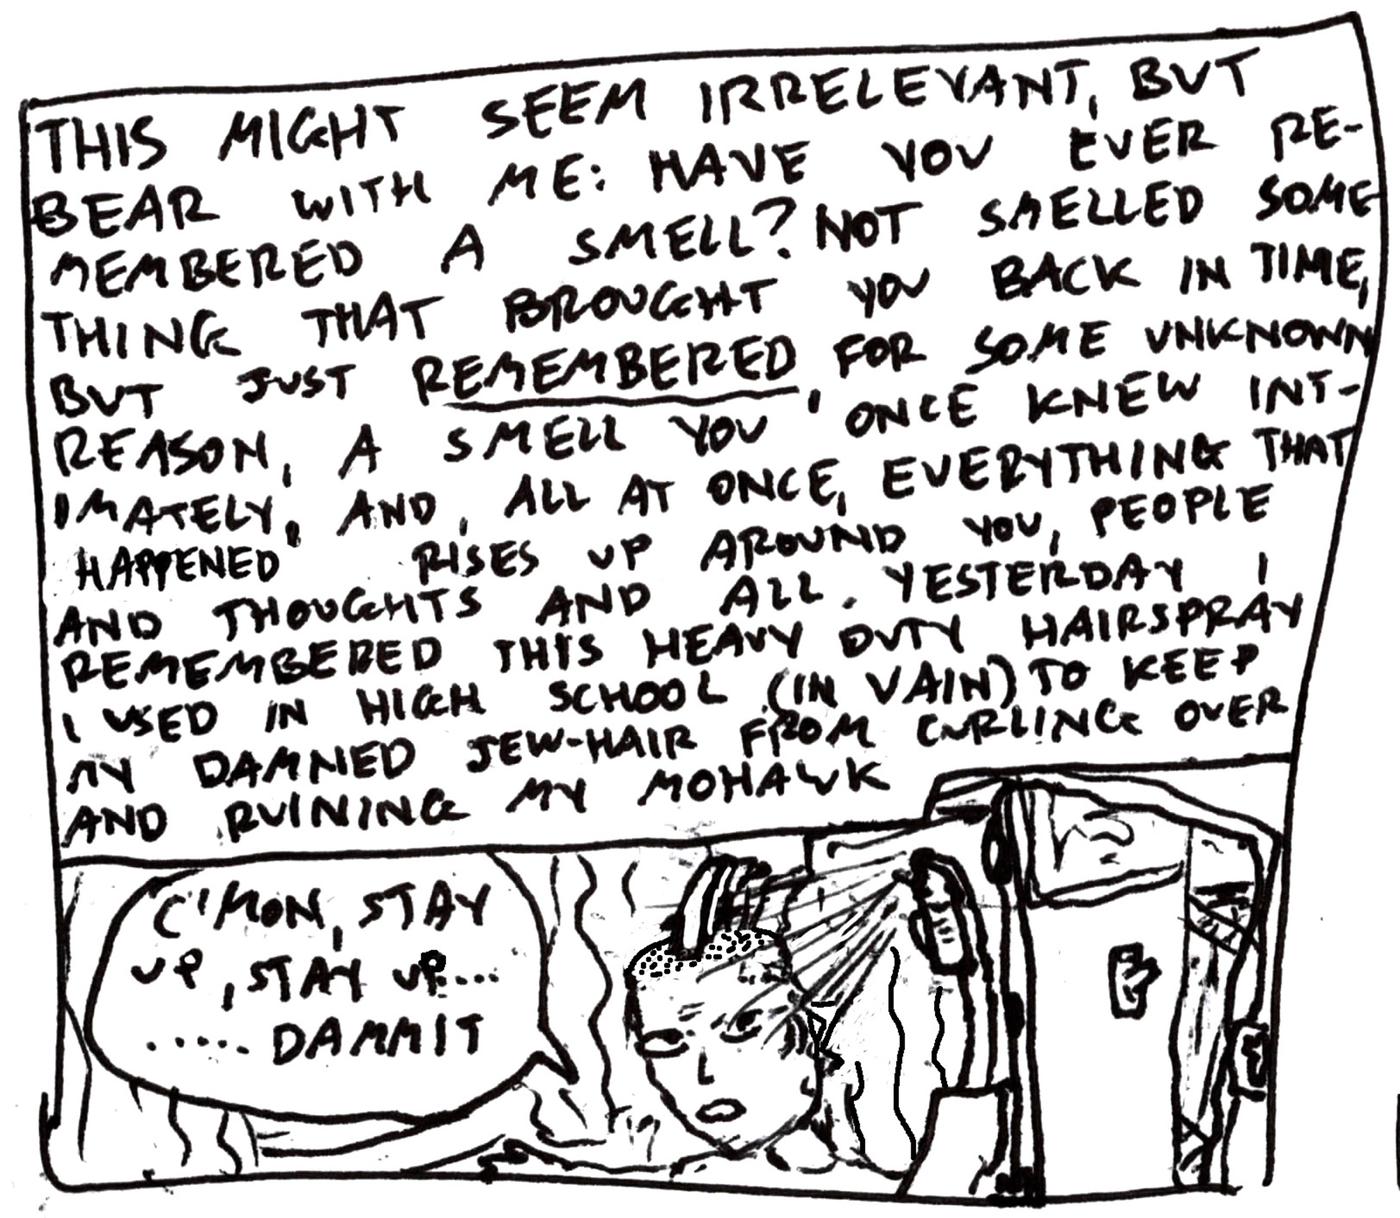 THIS MIGHT SEEM IRRELEVANT, BUT
BEAR WITH ME: HAVE YOU EVER RE-
MEMBERED A SMELL? NOT SMELLED SOME-
THING THAT BROUGHT YOU BACK IN TIME,
BUT JUST REMEMBERED, FOR SOME UNKNOWN
REASON, A SMELL YOU ONCE KNEW INT-
IMATELY, AND, ALL AT ONCE, EVERYTHING THAT
HAPPENED RISES UP AROUND YOU, PEOPLE
AND THOUGHTS AND ALL. YESTERDAY I
REMEMBERED THIS HEAVY DUTY HAIRSPRAY
I USED IN HIGH SCHOOL (IN VAIN) TO KEEP
MY DAMNED JEW-HAIR FROM CURLING OVER
AND RUINING MY MOHAWK
C'MON, STAY
UP, STAY UP....
..... DAMMIT